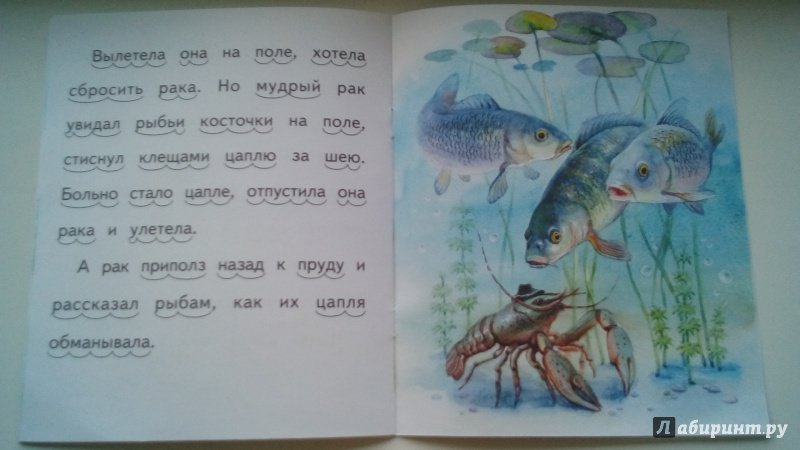 Вылетела она на поле, хотела
сбросить рака. Но мудрый рак
увидал рыбьи косточки на поле,
стиснул клещами цаплю за шею.
Больно стало цапле, отпустила она
рака и улетела.
А рак приполз назад к пруду и
рассказал рыбам, как их цапля
обманывала.
Лабиринт.ру